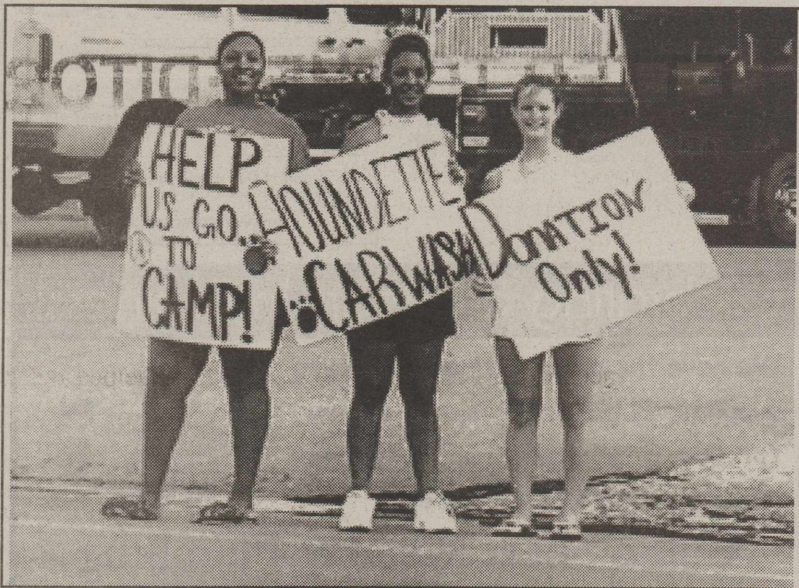 HELP
US GO
TO
CAMP!
HOUNDETTE
CARWASH
DONATION
Only!